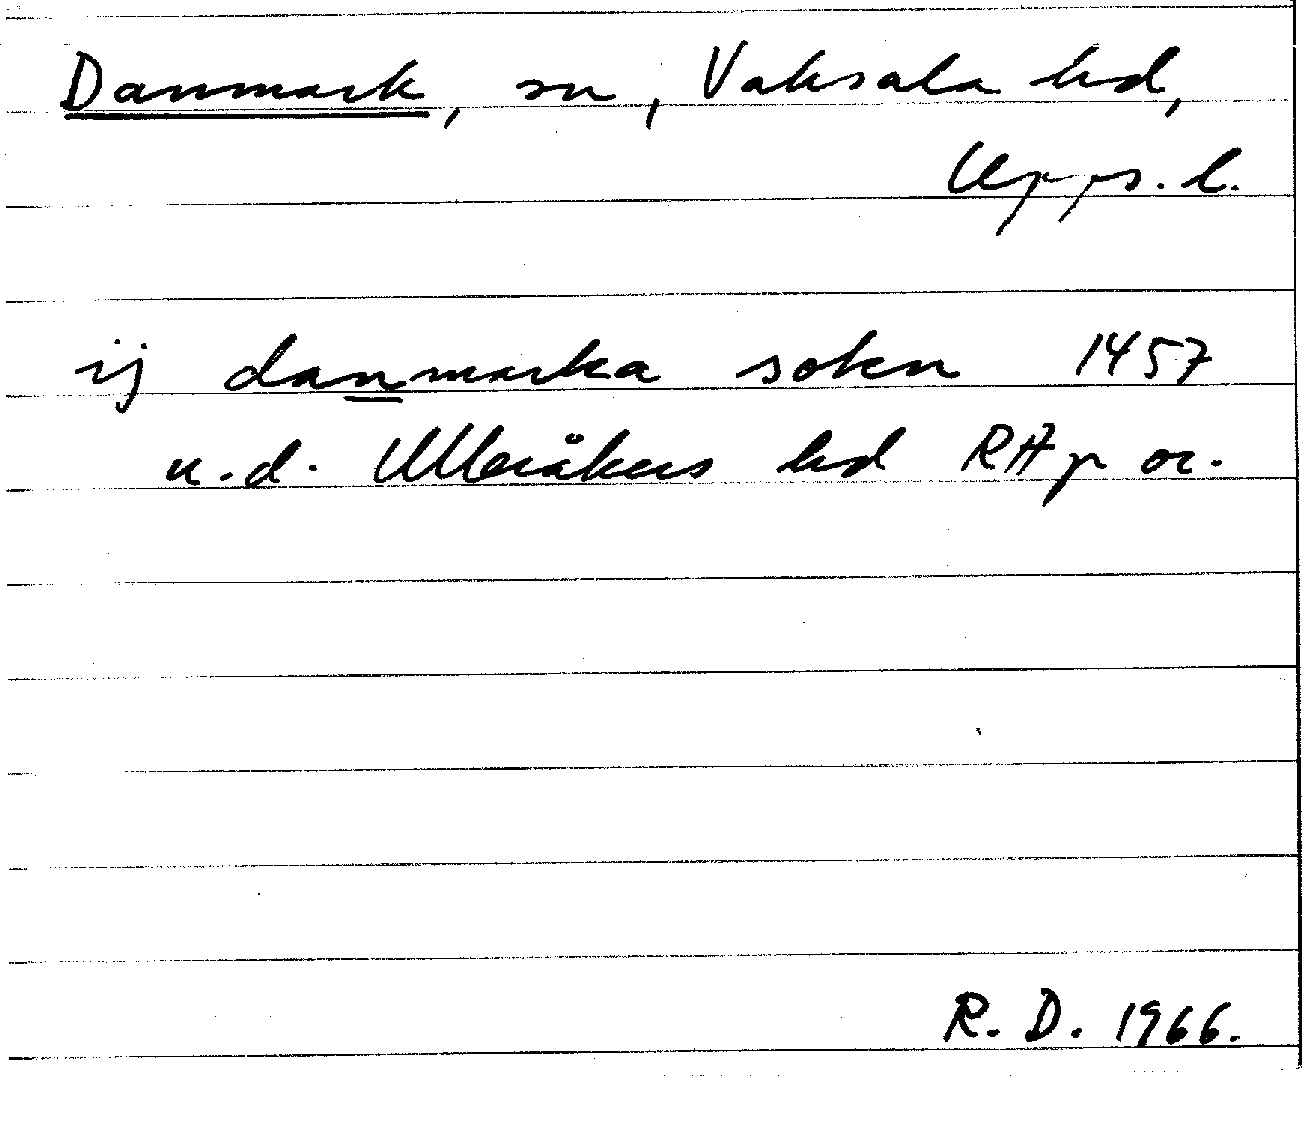 Danmark, sn, Vaksala hd,
Upps. l.
ij danmarka sokn 1457
u.d. Ulleråkers hd RAp or.
R. D. 1966.